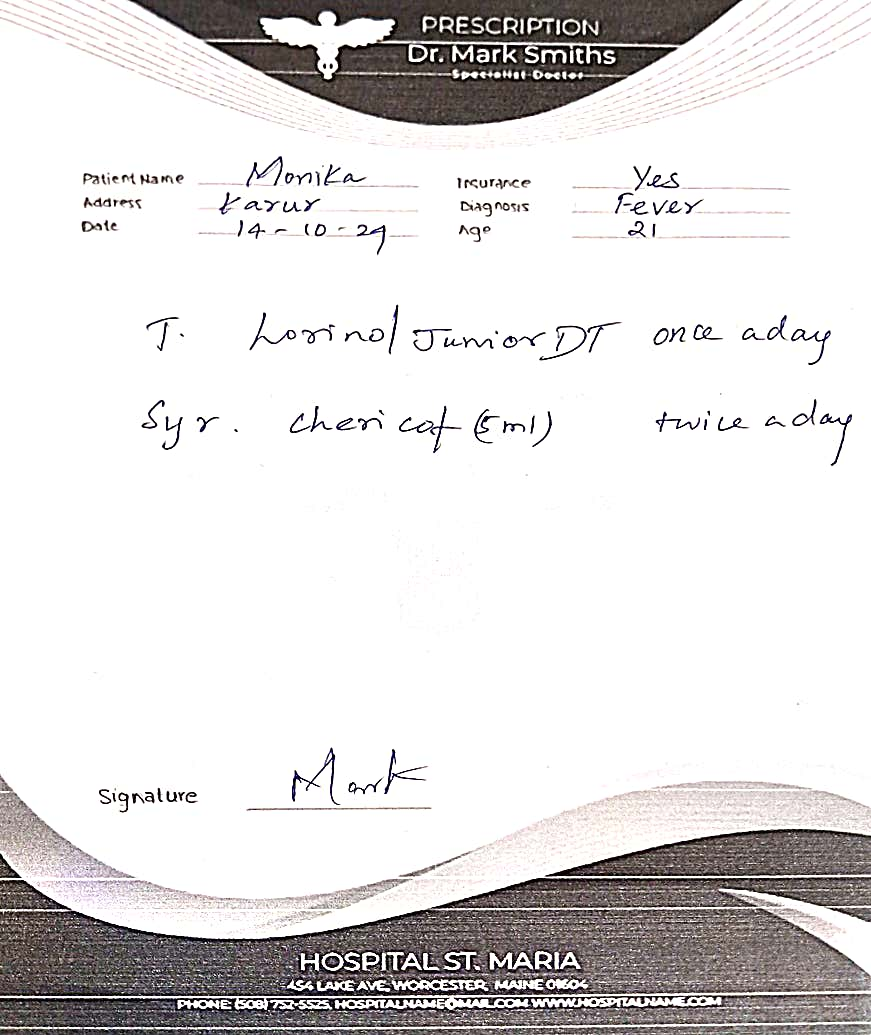 PRESCRIPTION
Dr. Mark Smiths
Specialist Doctor
Patient Name Monika Insurance Yes
Address Karur Diagnosis Fever
Date 14-10-29 Age 21
T. Lorinol Junior DT once a day
Syr. chericof (5ml) twice a day
Signature Mark
HOSPITAL ST. MARIA
454 LAKE AVE, WORCESTER, MAINE 01604
PHONE: (508) 752-5525, HOSPITALNAME@MAIL.COM WWW.HOSPITALNAME.COM